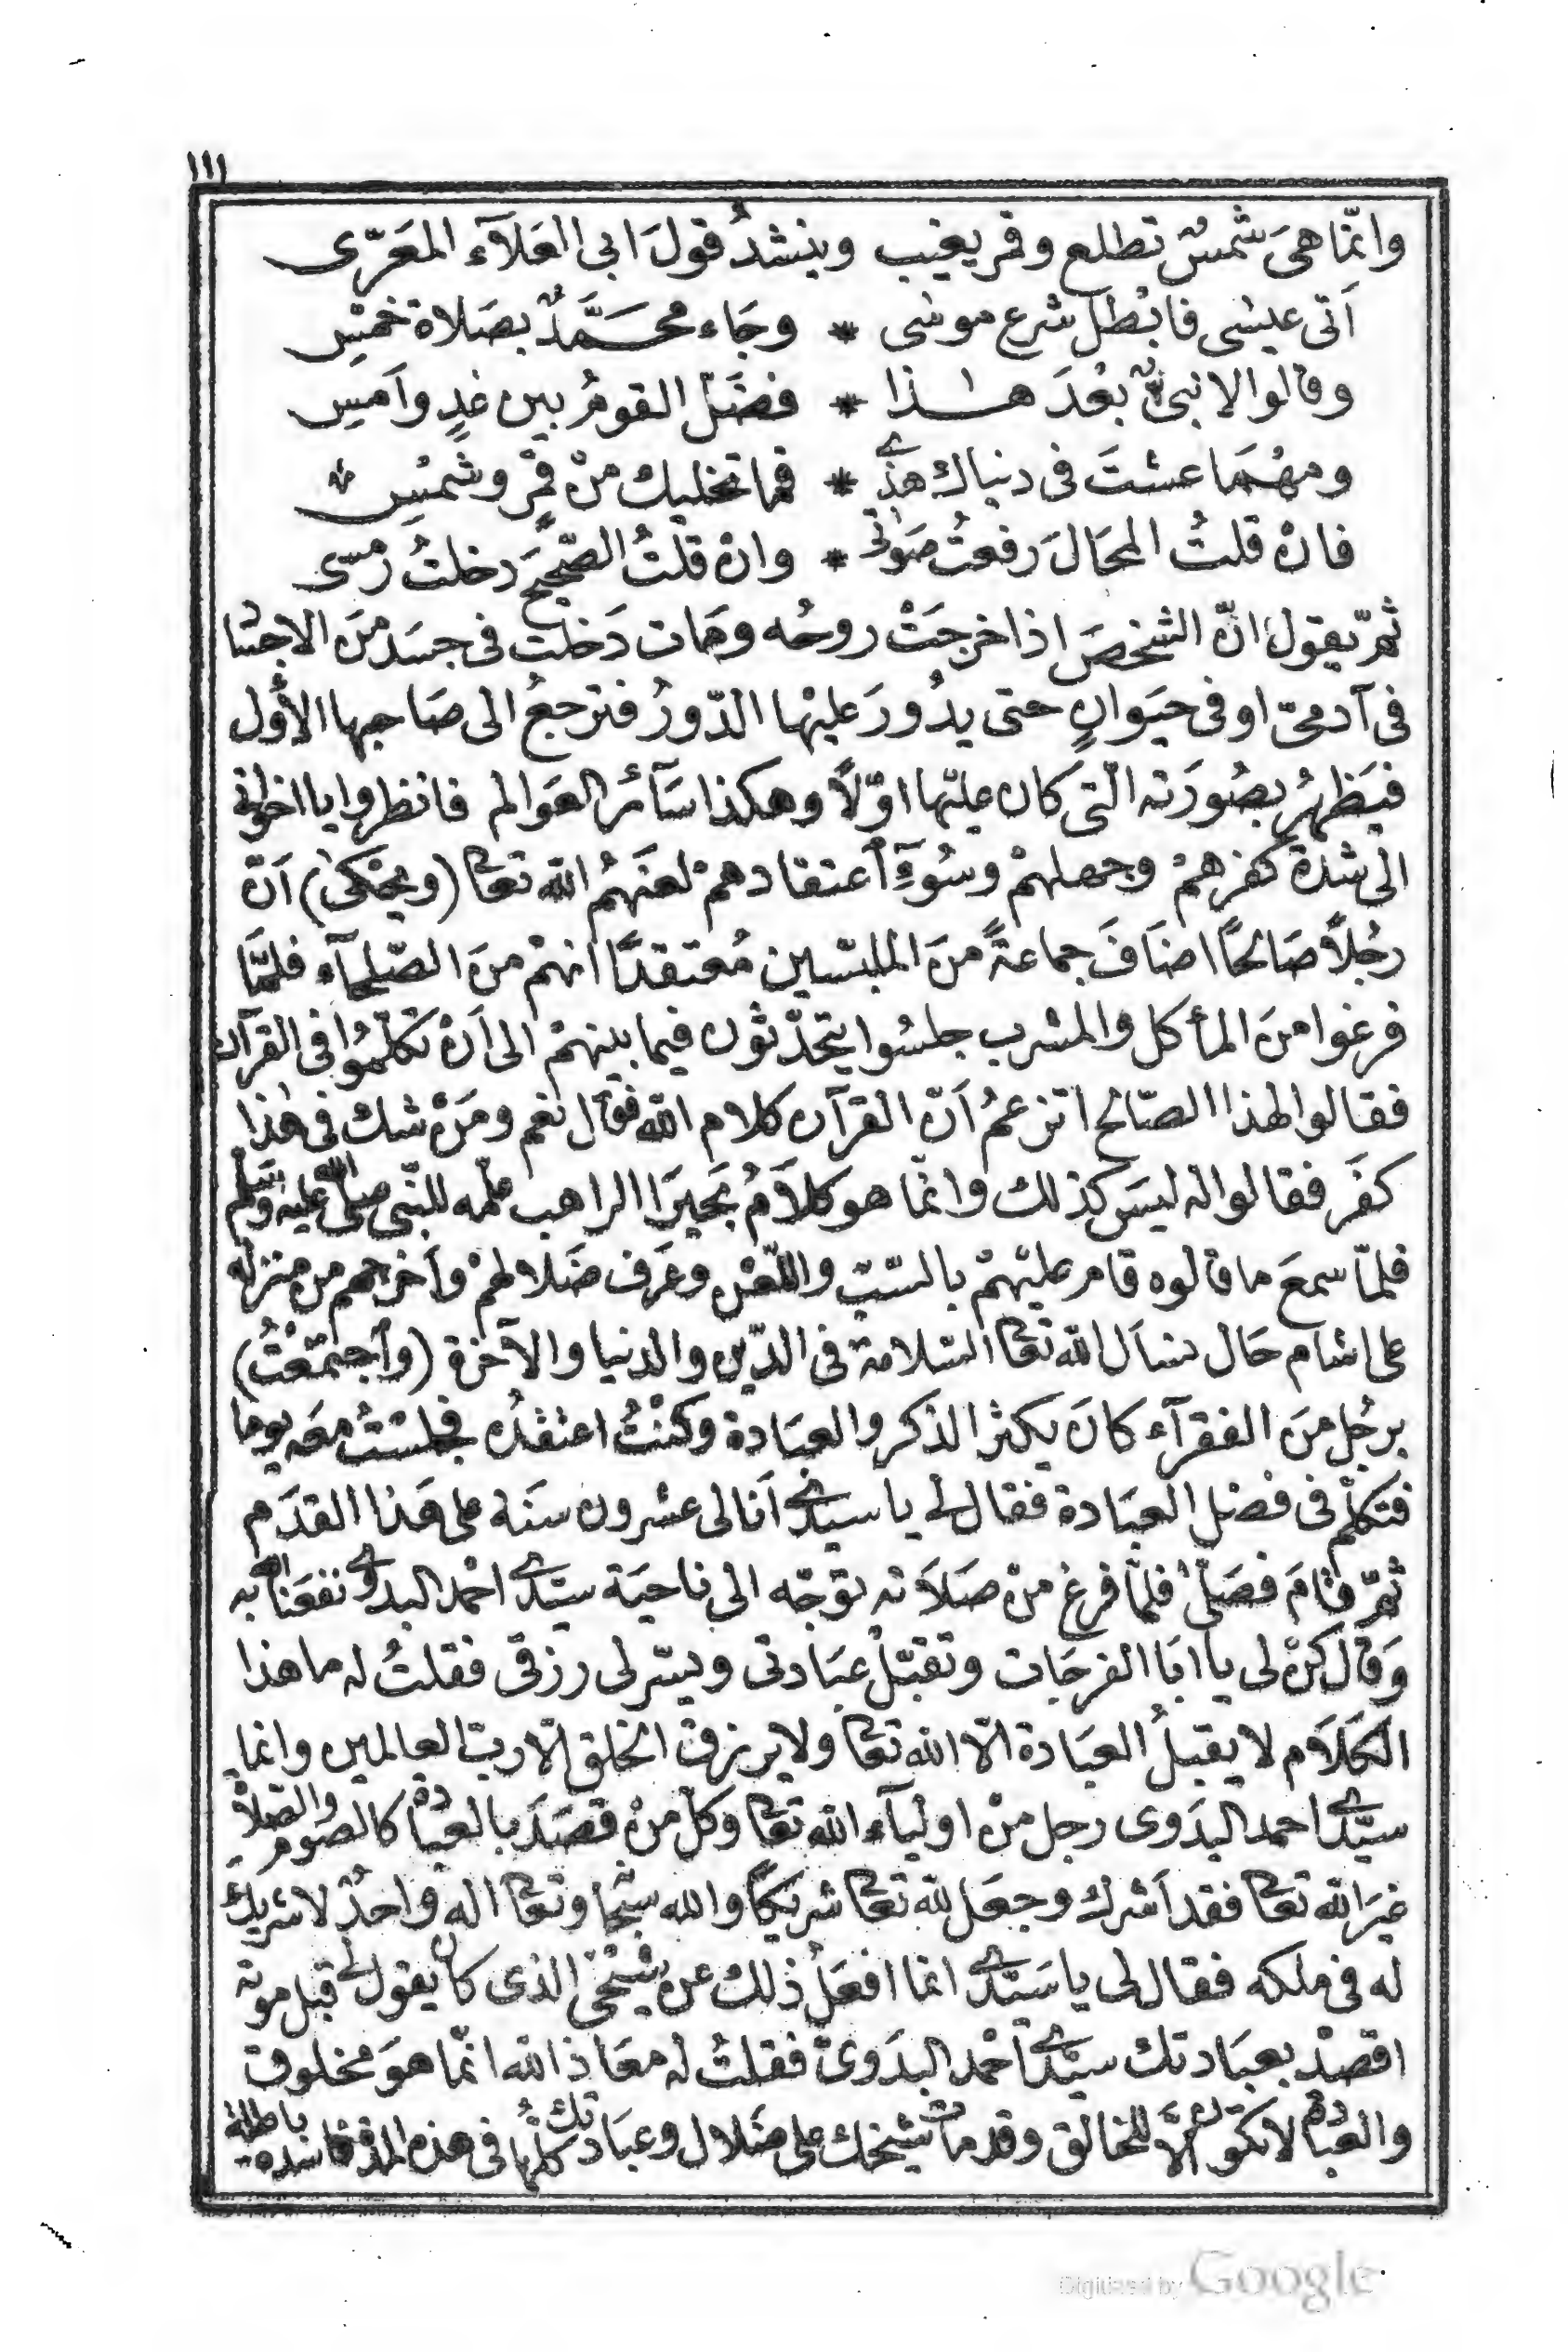 ١١١
وانّما هىَ شمسٌ تطلع وقمر يغيب وينشدُ قولَ ابى العَلَآء المعَرّى
اَتى عيسٰى فابْطل شرع موسٰى * وجَاء محَمَّدٌ بصَلاة خمسْ
وقالوا لا نبىٌّ بعْدَ هٰذا * فضَلّ القومُ بين غدٍ وآمسِ
ومهْمَا عشتَ فى دنياك هذى * فما تخليك منْ قمرٍ وشمسِ
فانْ قلتُ المحَالَ رفعتُ صَوتى * وانْ قلتُ الصّحيحَ دخلتُ رمْسى
ثمّ يقول انّ الشخصَ اذا خرجَتْ روحُه ومَات دَخلت فى جسَد منَ الاجسَا
فى آدمىّ او فى حيَوانٍ حتى يدُورَ عليْها الدّورُ فترجعُ الى صَاحبها الأول
فيَظهرُ بصُورَته الّتى كان عليْها اوّلاً وهكذا سَآئر العَوالم فانظروا يا اخوانى
الى شدّة كفرهمْ وجهلهمْ وسُوٓءِ اعتقادهمْ لعنَهُم الله تعا (ويحْكى) اَنّ
رجُلاً صَالحًا اضَافَ جماعةً منَ الملبسّين مُعتقدًا انهمْ منَ الصّلحآء فلمَّا
فرغوا منَ المأكل والمشرب جلسُوا يتحَدّثون فيما بينهمْ الى اَنْ تكلّموُا فى القرآن
فقالوا لهذا الصّالح اتزعمُ اَنّ القرآن كلام الله فقال نعم ومَنْ شك فى هٰذا
كفَر فقالوا له ليسَ كذلك وانّما هو كلاَمُ بَحيرَا الراهب علّمه للنّبى صلى الله عليه وسلم
فلمّا سمعَ ما قالوه قام عليْهمْ بالسّبّ واللّعْن وعرَف ضَلالهمْ وأخرجهم من منزله
على اشام حَال نسأل الله تعا السّلامة فى الدّين والدنيا والآخرة (وآجتمَعْتُ)
برجُل منَ الفقرآء كانَ يكثر الذكر والعبَادة وكنْتُ اعتقدُه فجلسْتُ معَه يوما
فتكلّم فى فضل العبَادة فقال لى يا سيّدى اَنا لى عشرون سنَة على هَذا القدَم
ثمّ قامَ فصَلّى فلمّا فرغ منْ صَلاَته توجّه الى ناحيَة سيّدى احْمد البدوى نفعَنا الله به
وَقال كنْ لى يا ابَا الفرجَات وتقبّلْ عبَادتى ويسّر لى رزقى فقلتُ له ما هذا
الكلاَم لا يقبلُ العبَادة الّا الله تعا ولا يرزق الخلق الّا ربّ العالمين وانما
سيّدى احمد البدَوى رجل منْ اوليآء الله تعا وكلّ منْ قصَدَ بالعبادة كالصّوم والصّلاة
غيرَ الله تعا فقد اَشرك وجعَل لله تعا شريكًا والله سبحا وتعا اله واحدٌ لا شريك
له فى ملكه فقال لى يا سَيّدى انما افعَل ذلك عن شيْخى الذى كان يقول لى قبل موته
اقصدْ بعبَادتك سيّدى اَحْمد البدَوىّ فقلتُ له معَاذ الله انّما هوَ مخلوق
والعبادة لا تكون الّا للخالق وقد مات شيخك على ضَلال وعبَادتك كلّها فى هذه المدّة فاسدة باطلة